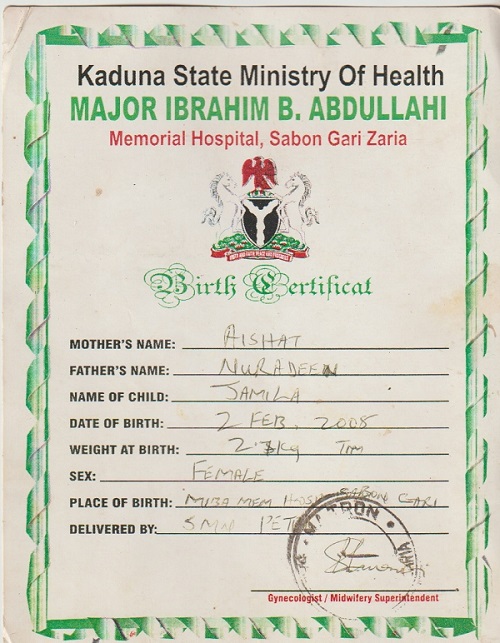 Kaduna State Ministry Of Health
MAJOR IBRAHIM B. ABDULLAHI
Memorial Hospital, Sabon Gari Zaria
UNITY AND FAITH, PEACE AND PROGRESS
Birth Certificat
MOTHER'S NAME: AISHAT
FATHER'S NAME: NURADEEN
NAME OF CHILD: JAMILA
DATE OF BIRTH: 2 FEB. 2008
WEIGHT AT BIRTH: kg
SEX: FEMALE
PLACE OF BIRTH: MIBA MEM HOSP SABON GARI
DELIVERED BY: PET
MATRON
Gynecologist / Midwifery Superintendent